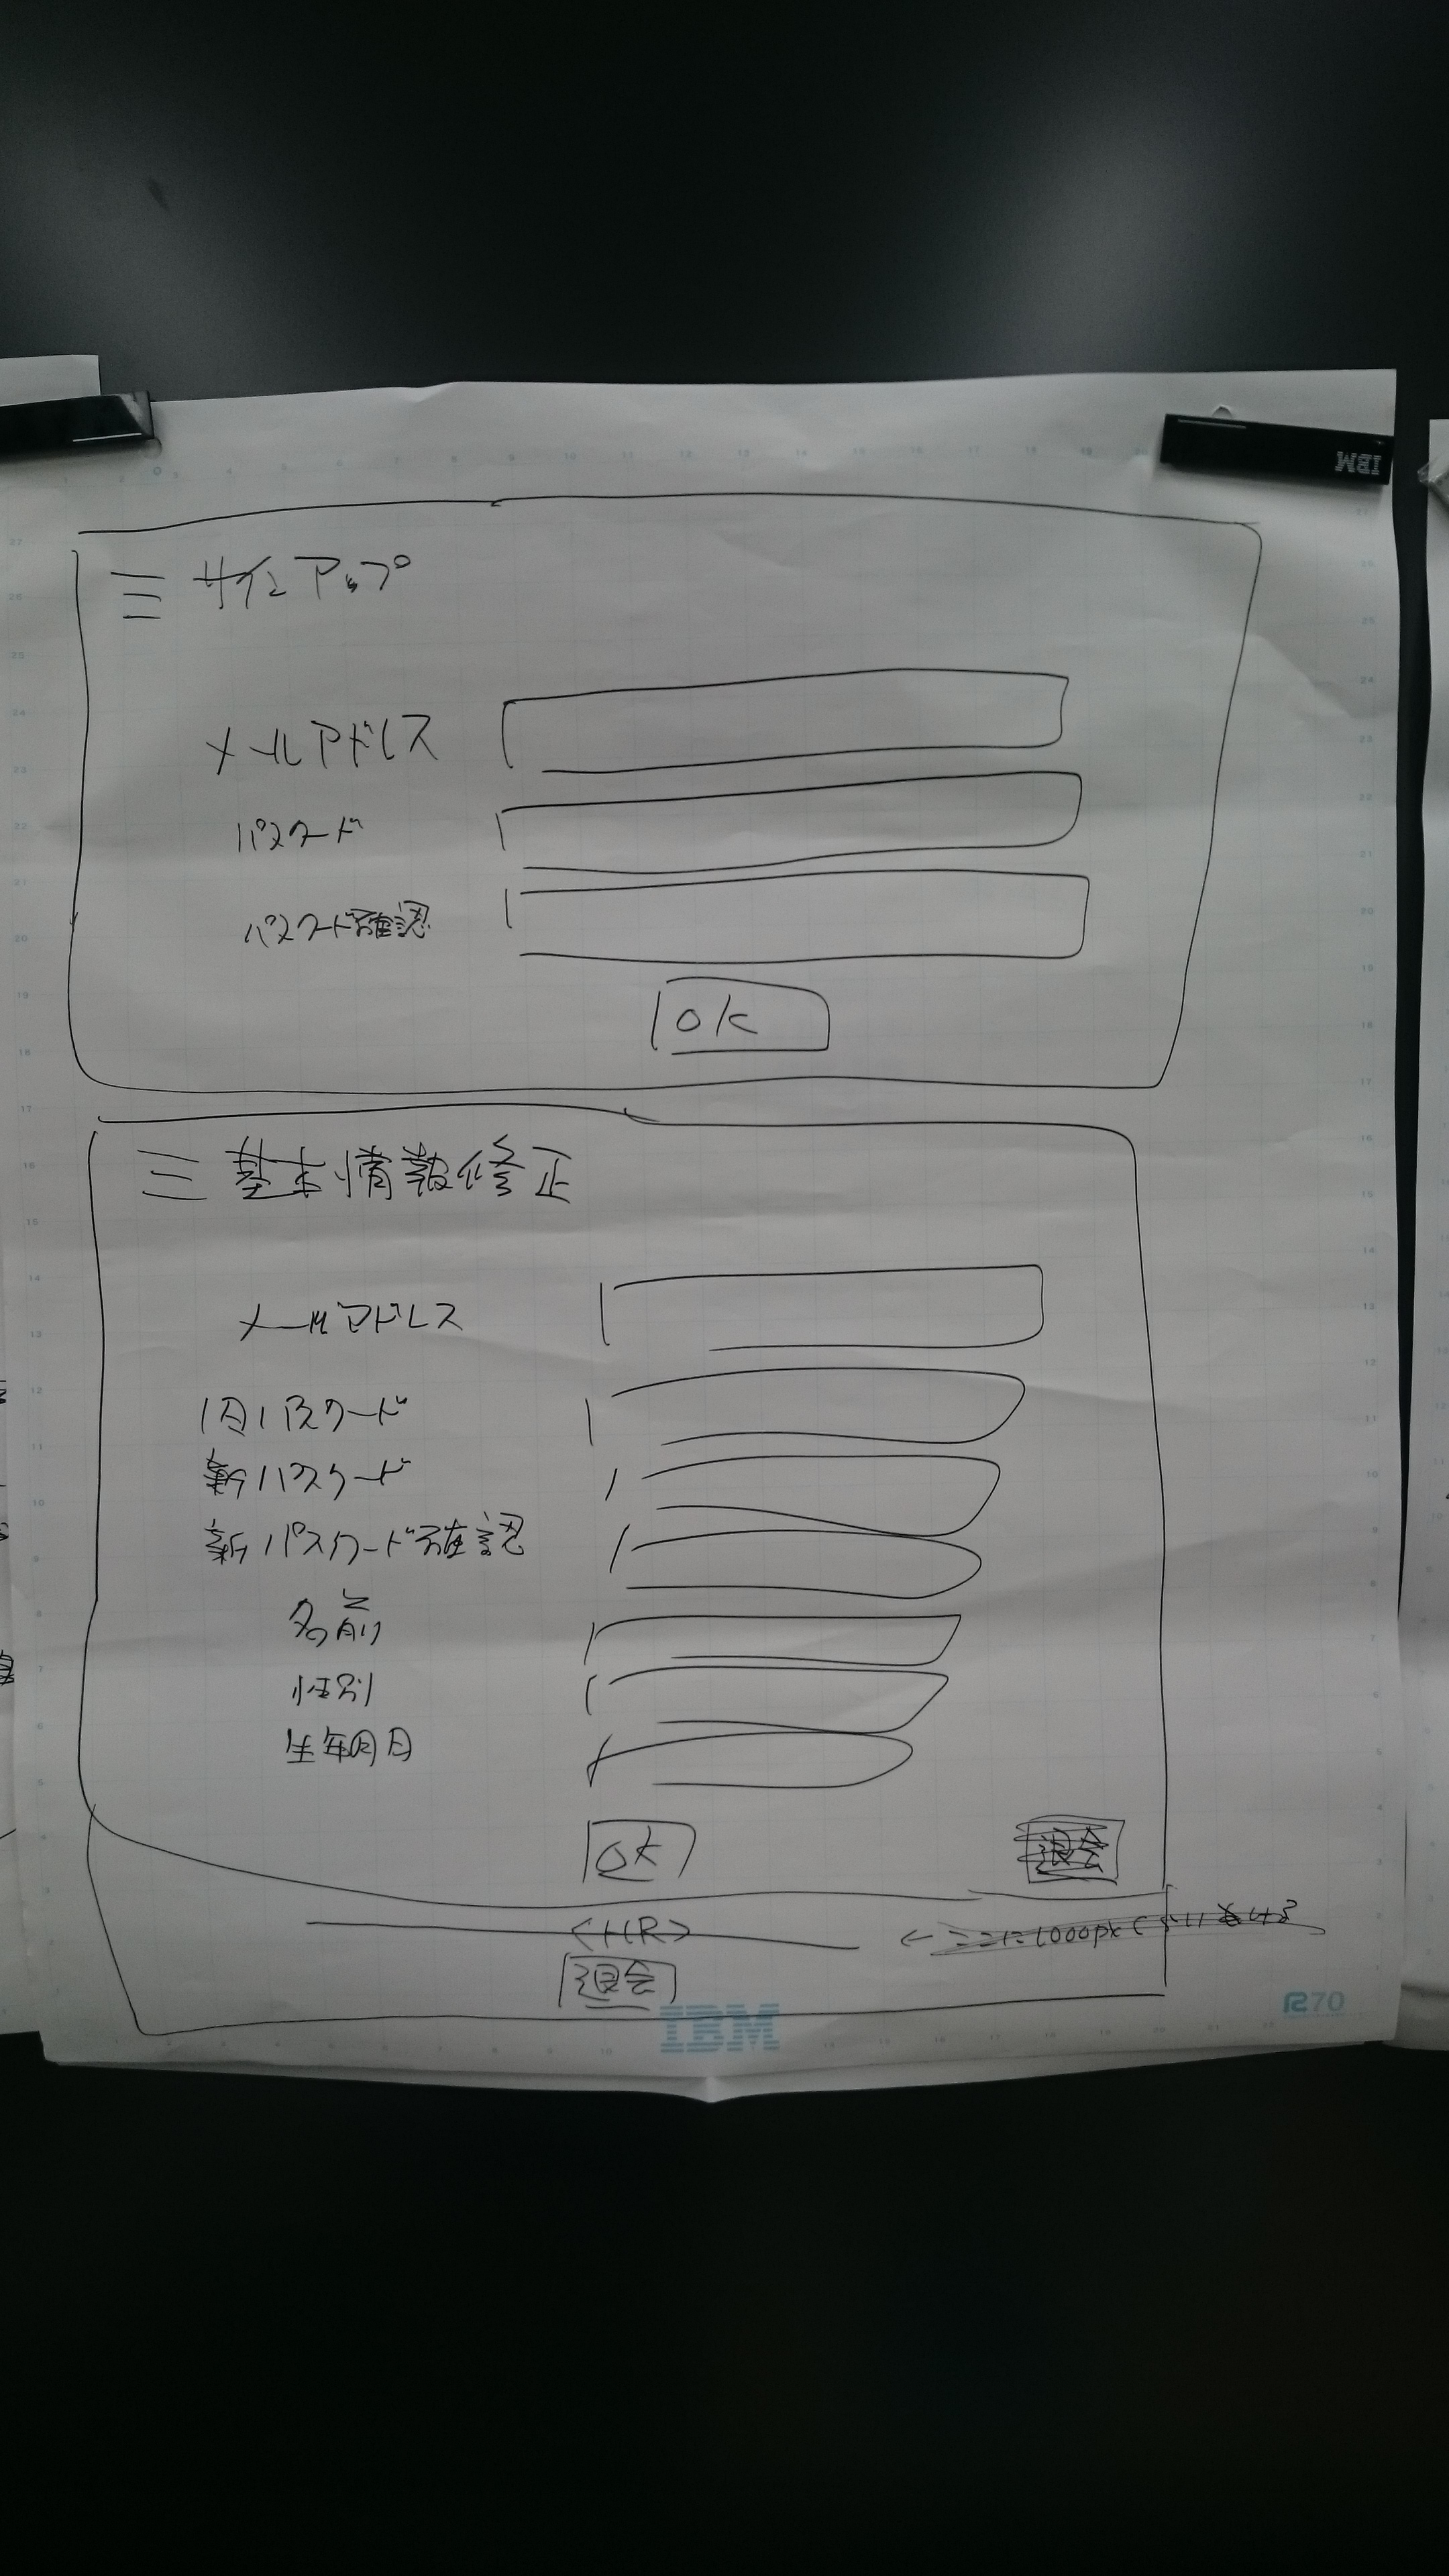 IBM
三 サインアップ
メールアドレス
パスワード
パスワード確認
OK
三 基本情報修正
メールアドレス
旧パスワード
新パスワード
新パスワード確認
名前
性別
生年月日
OK
退会
<HR>
← ここに1000px
退会
IBM
R70